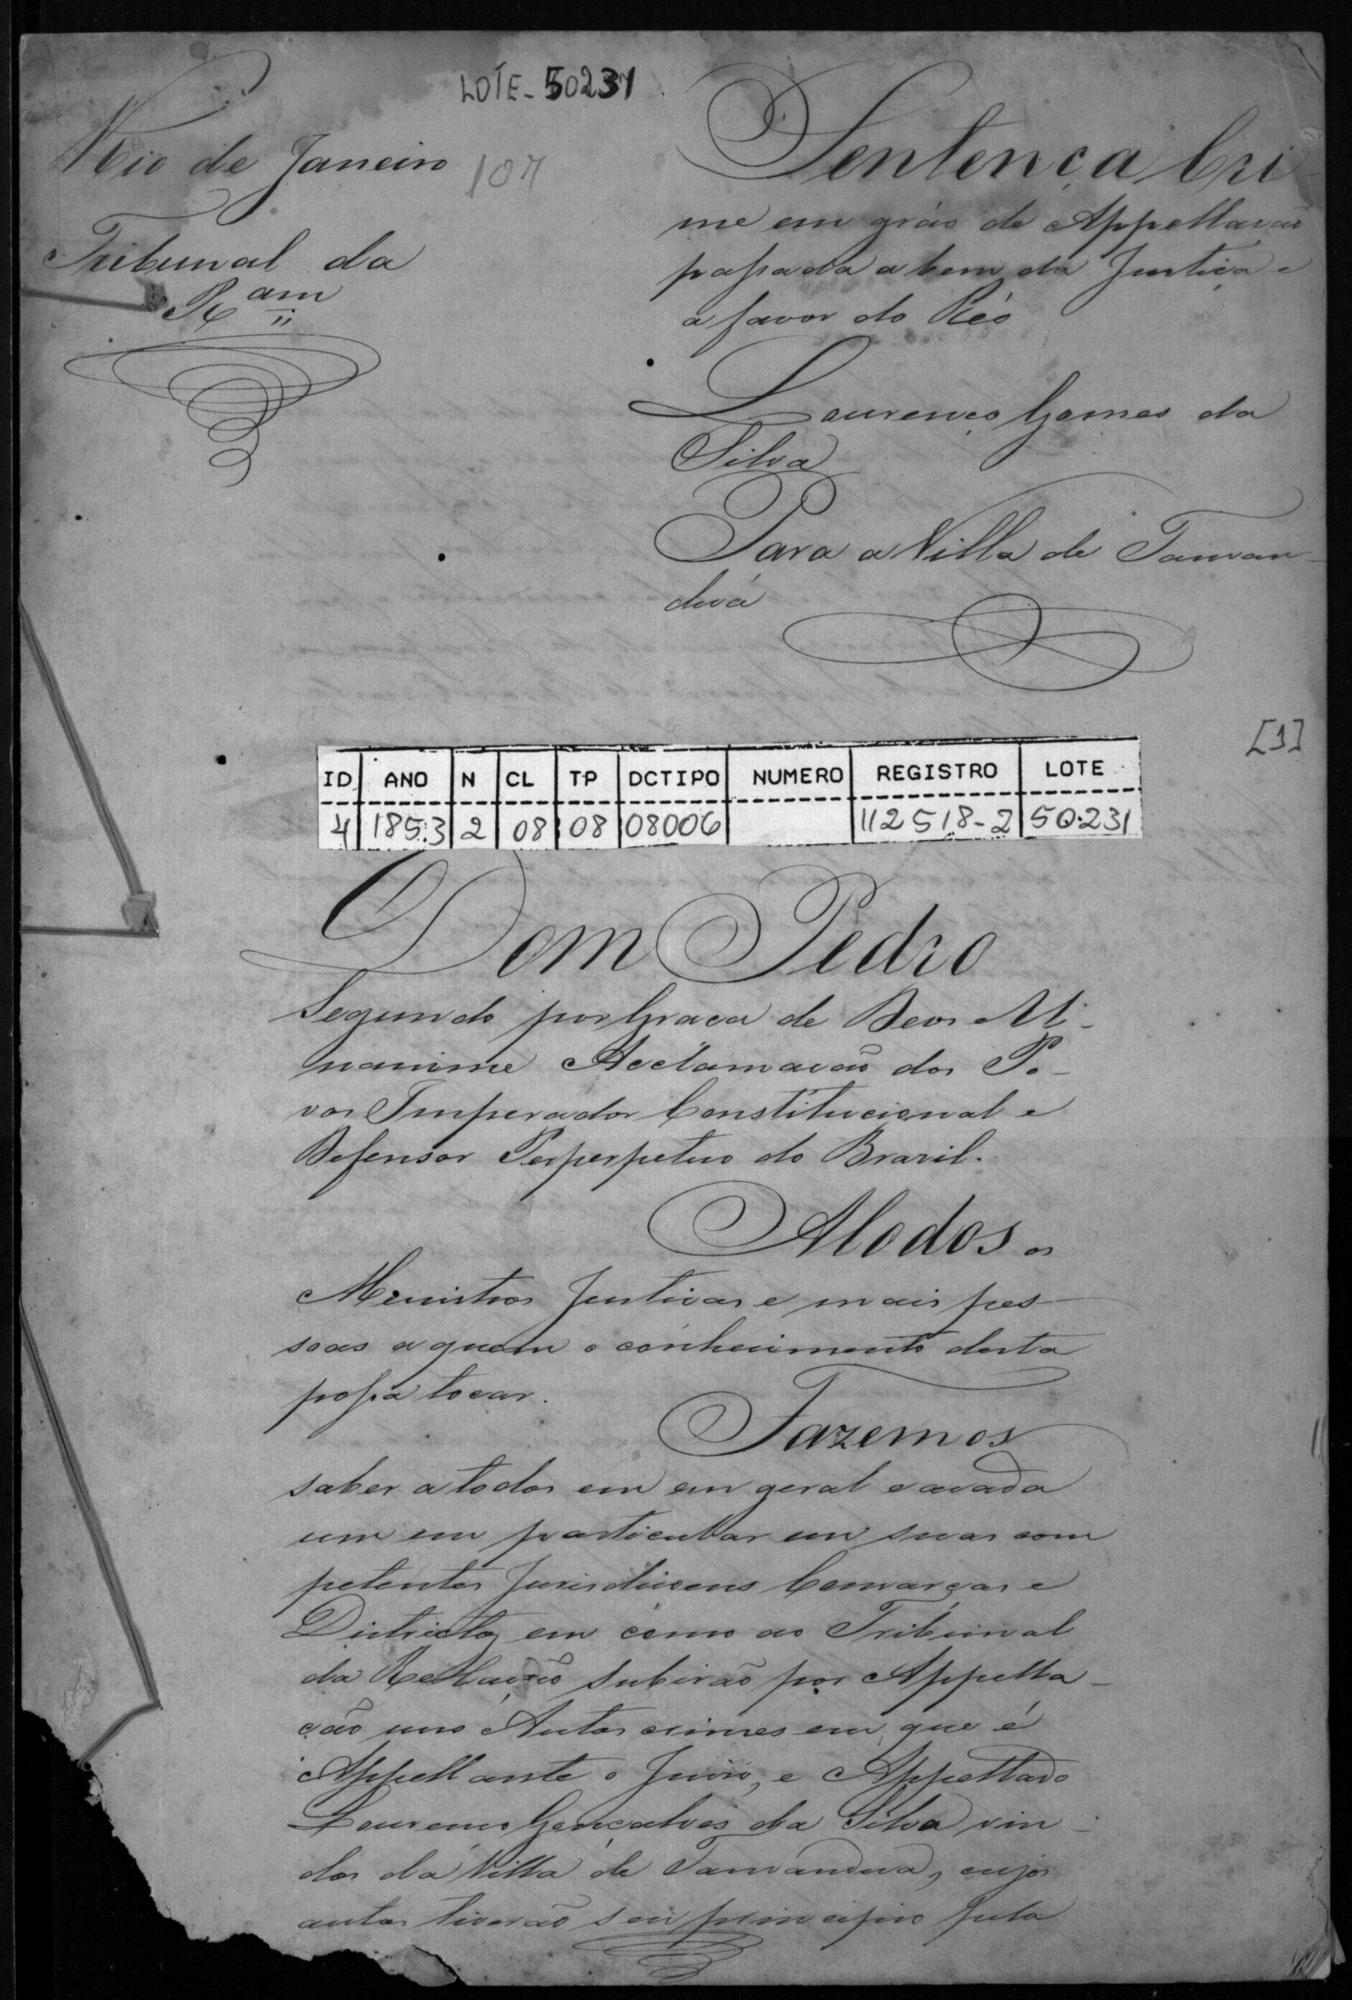 LOTE - 50231
Rio de Janeiro
107
Tribunal da
R.am
Sentença Cri
me em gráo de Appellação
passada a bem da Justiça e
a favor do Réo
Lourenço Gomes da
Silva
Para a Villa de Taman
duá
[1]
ID ANO N CL TP DCTIPO NUMERO REGISTRO LOTE
4 1853 2 08 08 08006 112518-2 50.231
Dom Pedro
Segundo por Graça de Deos e U-
nanime Acclamação dos Po-
vos Imperador Constitucional e
Defensor Perperpetuo do Brazil.
Atodos os
Menistros Justicas e mais pes-
soas a quem o conhecimento desta
possa tocar.
Fazemos
saber a todos em em geral e acada
um em particular em suas com
petentes Jurisdicens Comarcas e
Districtos em como ao Tribunal
da Rellação subirão por Appella-
ção uns Autos crimes em que é
Appellante o Juizo, e Appellado
Lourenço Gonçalves da Silva vin-
dos da Villa de Tamanduá, cujos
autos tiverão seu principio pela